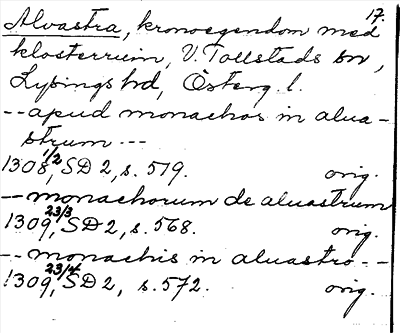 17.
Alvastra, kronoegendom med
klosterruin, V. Tollstads sn,
Lysings hd, Österg. l.
-- apud monachos in alua-
strum ---
1308 1/2, SD 2, s. 519. orig.
-- monachorum de aluastrum
1309 23/3, SD 2, s. 568. orig.
-- monachis in aluastro --
1309 23/4, SD 2, s. 572. orig.